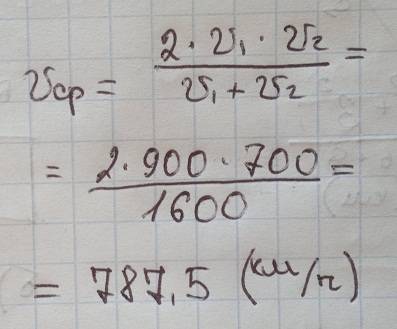 υср = 2·υ₁·υ₂ / υ₁+υ₂ =
= 2·900·700 / 1600 =
= 787,5 (км/ч)